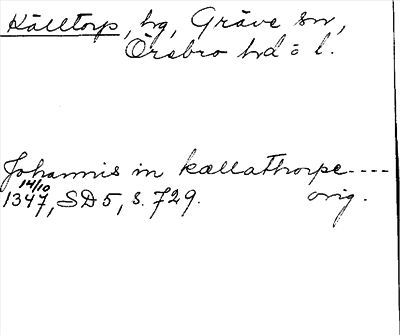 Källtorp, hg, Gräve sn,
Örebro hd o l.
Johannis in kællathorpe ----
14/10
1347, SD 5, s. 729. orig.